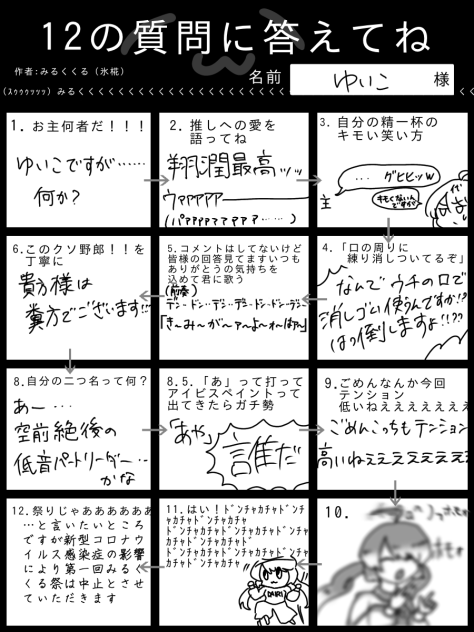 12の質問に答えてね
作者:みるくくる(氷椛)
名前 ゆいこ 様
(ｽｩｩｩｩｯｯｯ) みるくくくくくくくくくくくくくくくくくくくくくくくくくくくくくく
1. お主何者だ！！！
ゆいこですが……
何か?
2. 推しへの愛を
語ってね
翔潤最高ッッ
ウァァァァァ
3. 自分の精一杯の
キモい笑い方
… グヒヒッw
主
キモくないん
ですが
4. 「口の周りに
練り消しついてるぞ」
なんでウチの口で
消しゴム使うんですか!?
はっ倒しますよ!!??
5. コメントはしてないけど
皆様の回答見てますいつも
ありがとうの気持ちを
込めて君に歌う
(前奏)
「き〜み〜が〜ァ〜よ〜ォ〜はァ〜」
6. このクソ野郎！！を
丁寧に
貴方様は
糞方でございます!!
8. 自分の二つ名って何？
あー…
空前絶後の
低音パートリーダー…
かな
8.5. 「あ」って打って
アイビスペイントって
出てきたらガチ勢
「あや」
誰だ
9. ごめんなんか今回
テンション
低いねえええええええ
ごめんこっちもテンション
高いねぇぇぇぇぇぇぇ
10.
11. はい！ﾄﾞﾝﾁｬｶﾁｬﾄﾞﾝﾁ
ｬｶﾁｬﾄﾞﾝﾁｬｶﾁｬ
ﾄﾞﾝﾁｬｶﾁｬﾄﾞﾝﾁｬｶﾁｬﾄﾞﾝﾁｬ
ﾄﾞﾝﾁｬｶﾁｬﾄﾞﾝﾁｬｶﾁｬﾄﾞﾝﾁｬ
ｶﾁｬﾄﾞﾝﾁｬｶﾁｬ
12. 祭りじゃああああああ
…と言いたいところ
ですが新型コロナウ
イルス感染症の影響
により第一回みるく
くる祭は中止とさせ
ていただきます